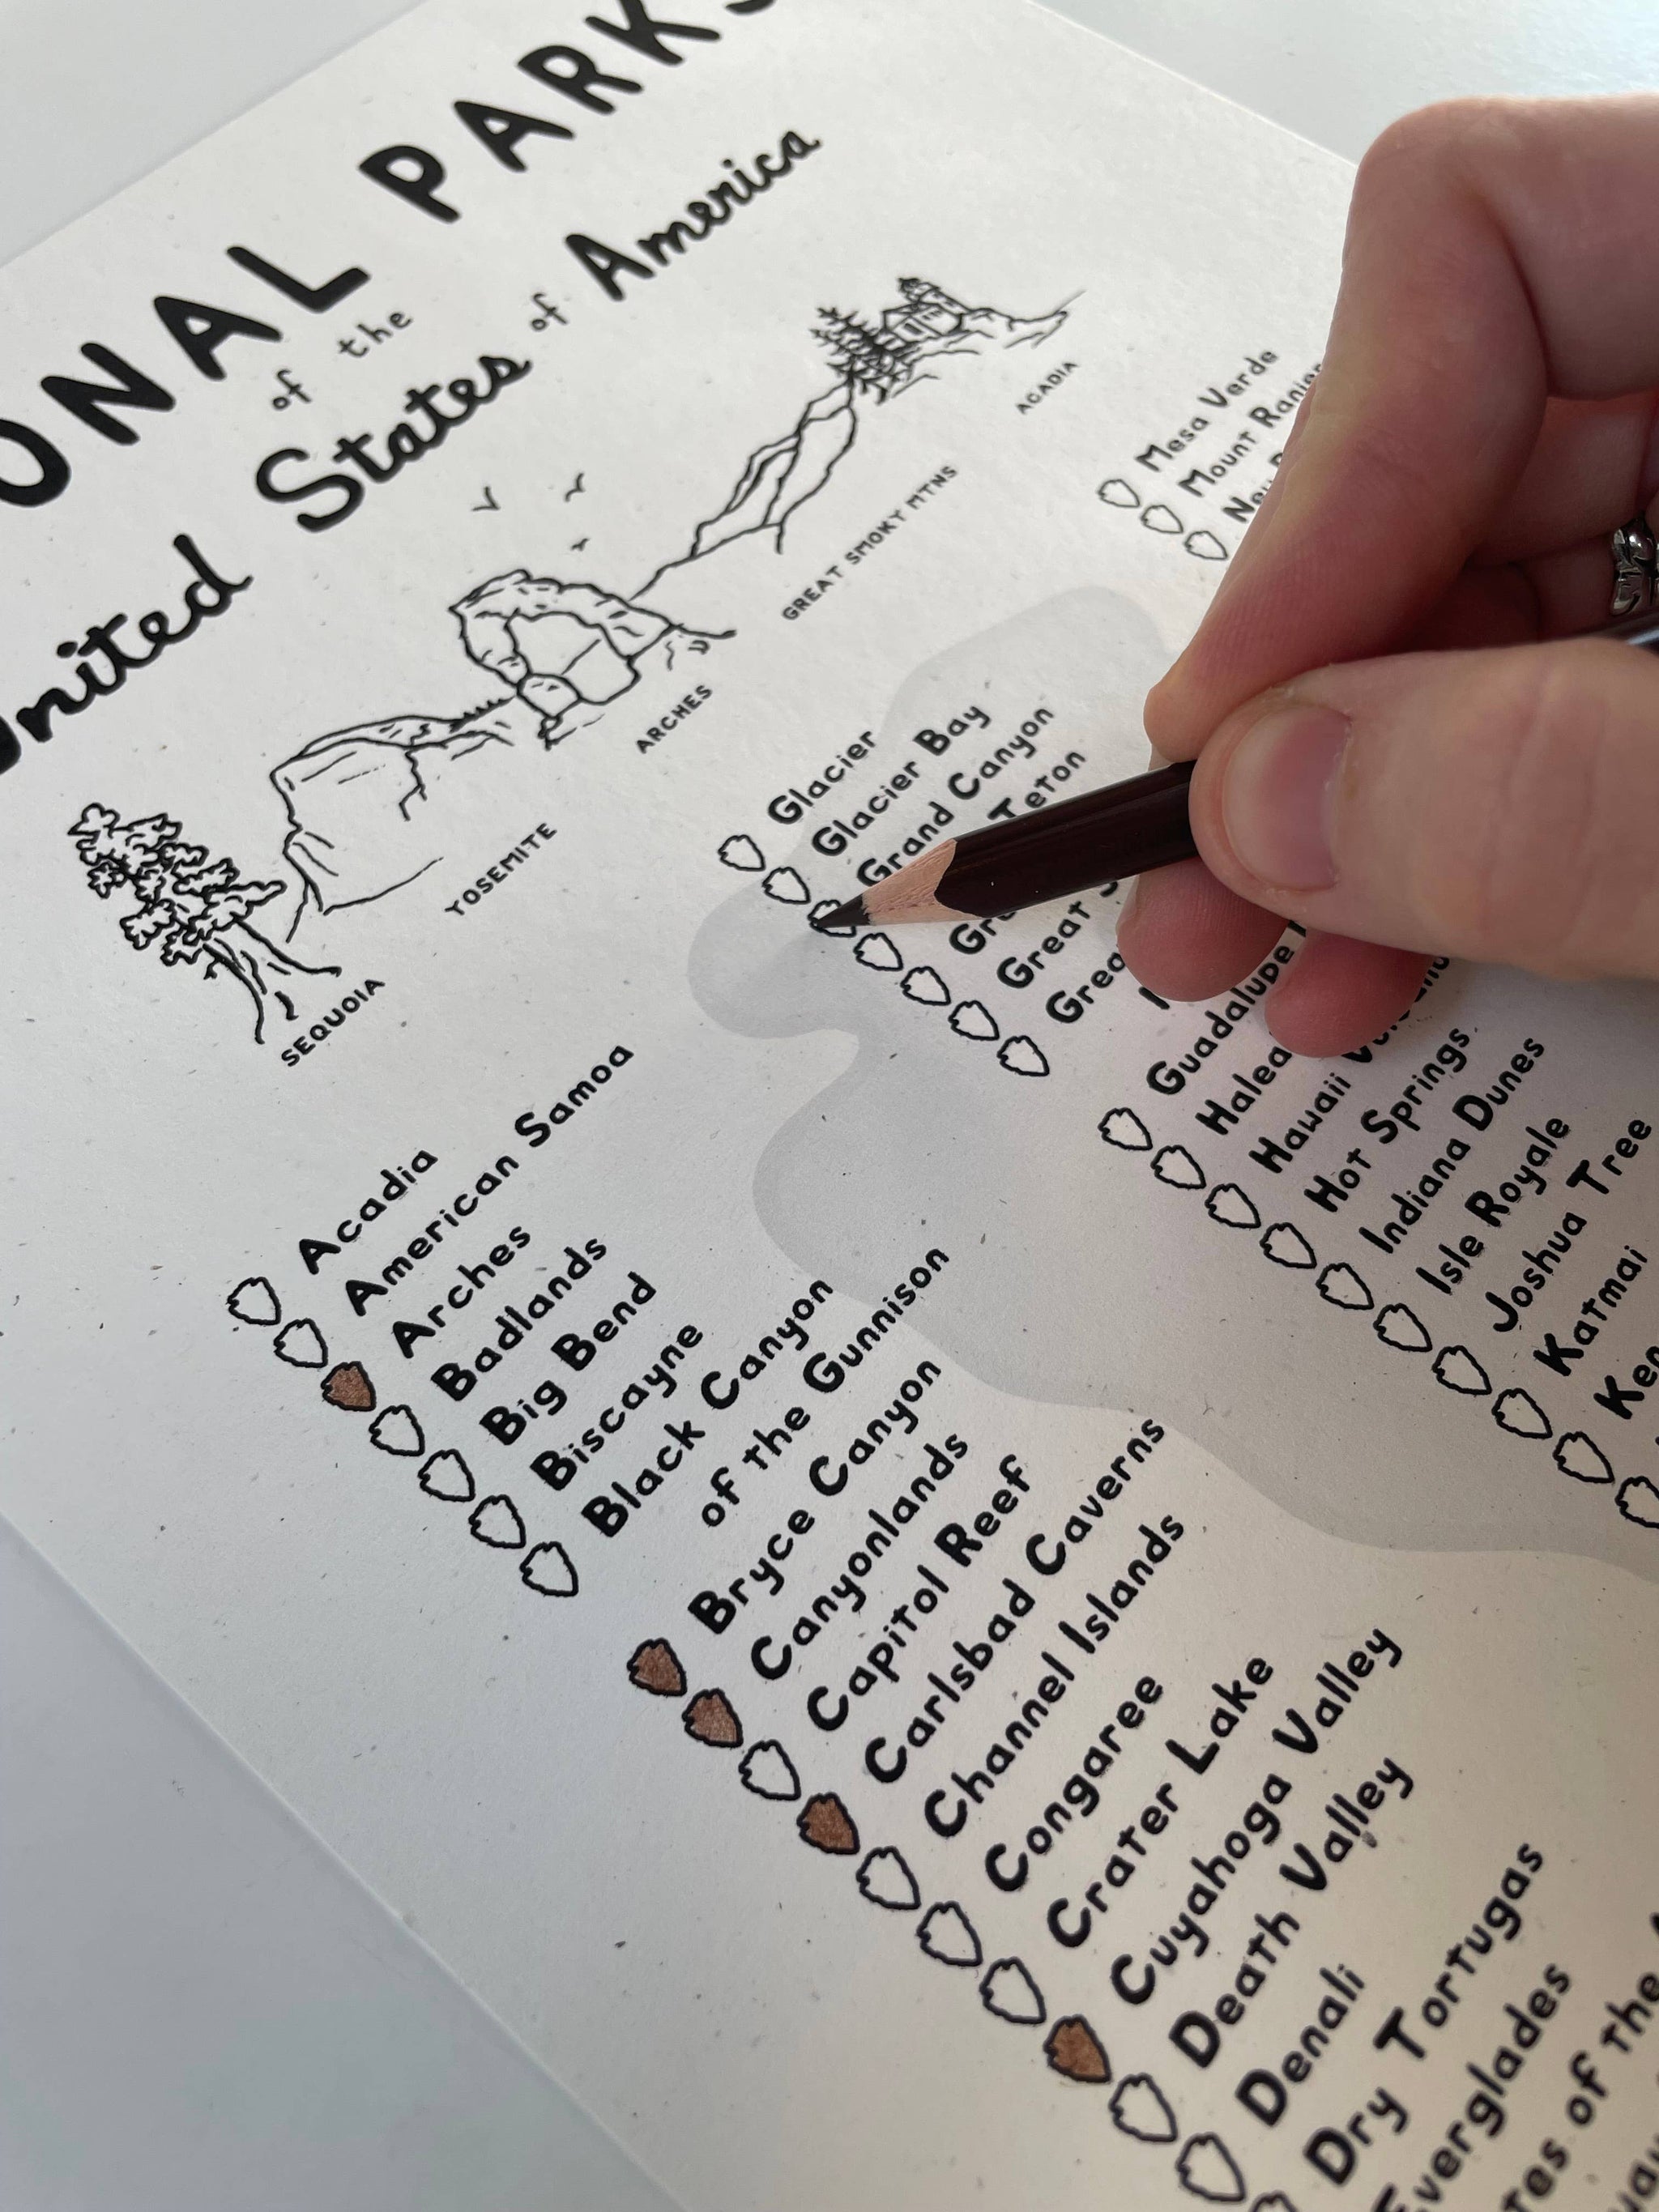 ONAL PARKS
of the
United States of America
SEQUOIA
YOSEMITE
ARCHES
GREAT SMOKY MTNS
ACADIA
Acadia
American Samoa
Arches
Badlands
Big Bend
Biscayne
Black Canyon
of the Gunnison
Bryce Canyon
Canyonlands
Capitol Reef
Carlsbad Caverns
Channel Islands
Congaree
Crater Lake
Cuyahoga Valley
Death Valley
Denali
Dry Tortugas
Everglades
of the
Glacier
Glacier Bay
Grand Canyon
Teton
Great
Guadalupe
Hawaii
Hot Springs
Indiana Dunes
Isle Royale
Joshua Tree
Katmai
Mesa Verde
Mount Ranier